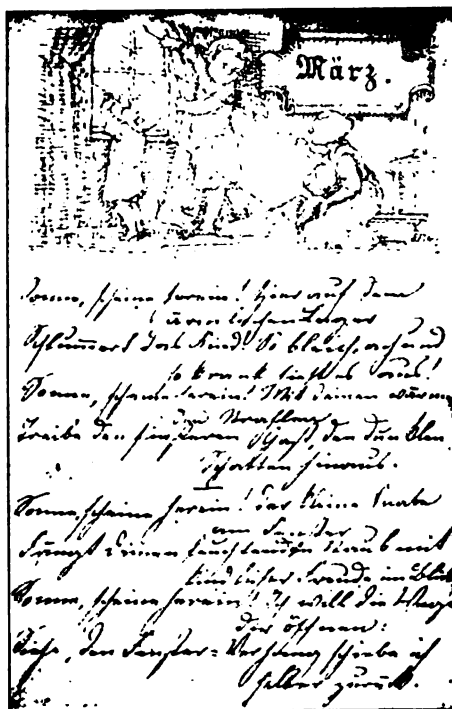 März.
Sonne, scheine herein! Hier auf dem
ärmlichen Lager
Schlummert das Kind. So bleich, ach und
so krank sieht es aus!
Sonne, scheine herein! Mit deinen wärmen
den Strahlen
Treibe den finsteren Gast, den dunklen
Schatten hinaus.
Sonne, scheine herein! Der kleine Knabe
am Fenster
Fängt deinen leuchtenden Staub mit
kindlicher Freude im Blick
Sonne, scheine herein! Ich will die Wege
dir öffnen:
Siehe, den Fenster-Vorhang schiebe ich
selber zurück.